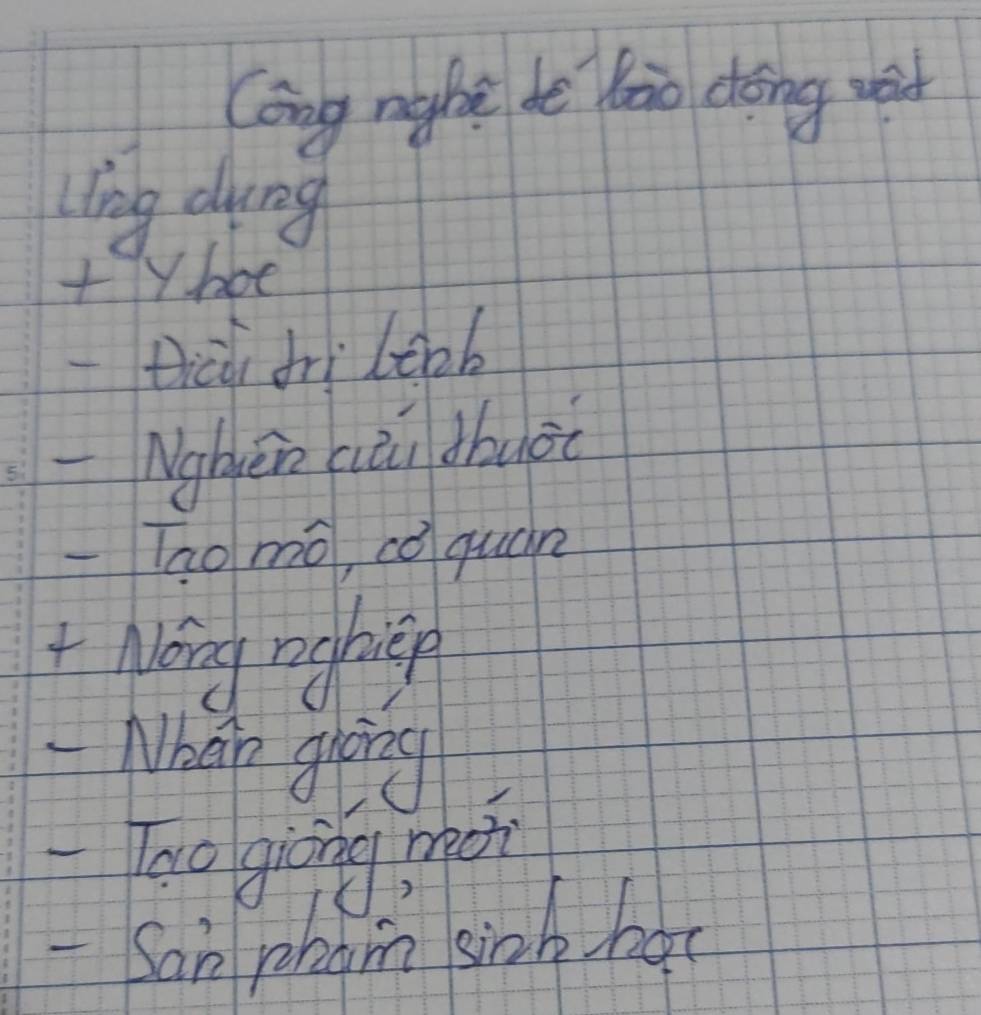 Công nghệ tế bào động vật
Ứng dụng
+ Y học
- Điều trị bệnh
- Nghiên cứu thuốc
- Tạo mô, cơ quan
+ Nông nghiệp
- Nhân giống
- Tạo giống mới
- Sản phẩm sinh học
5